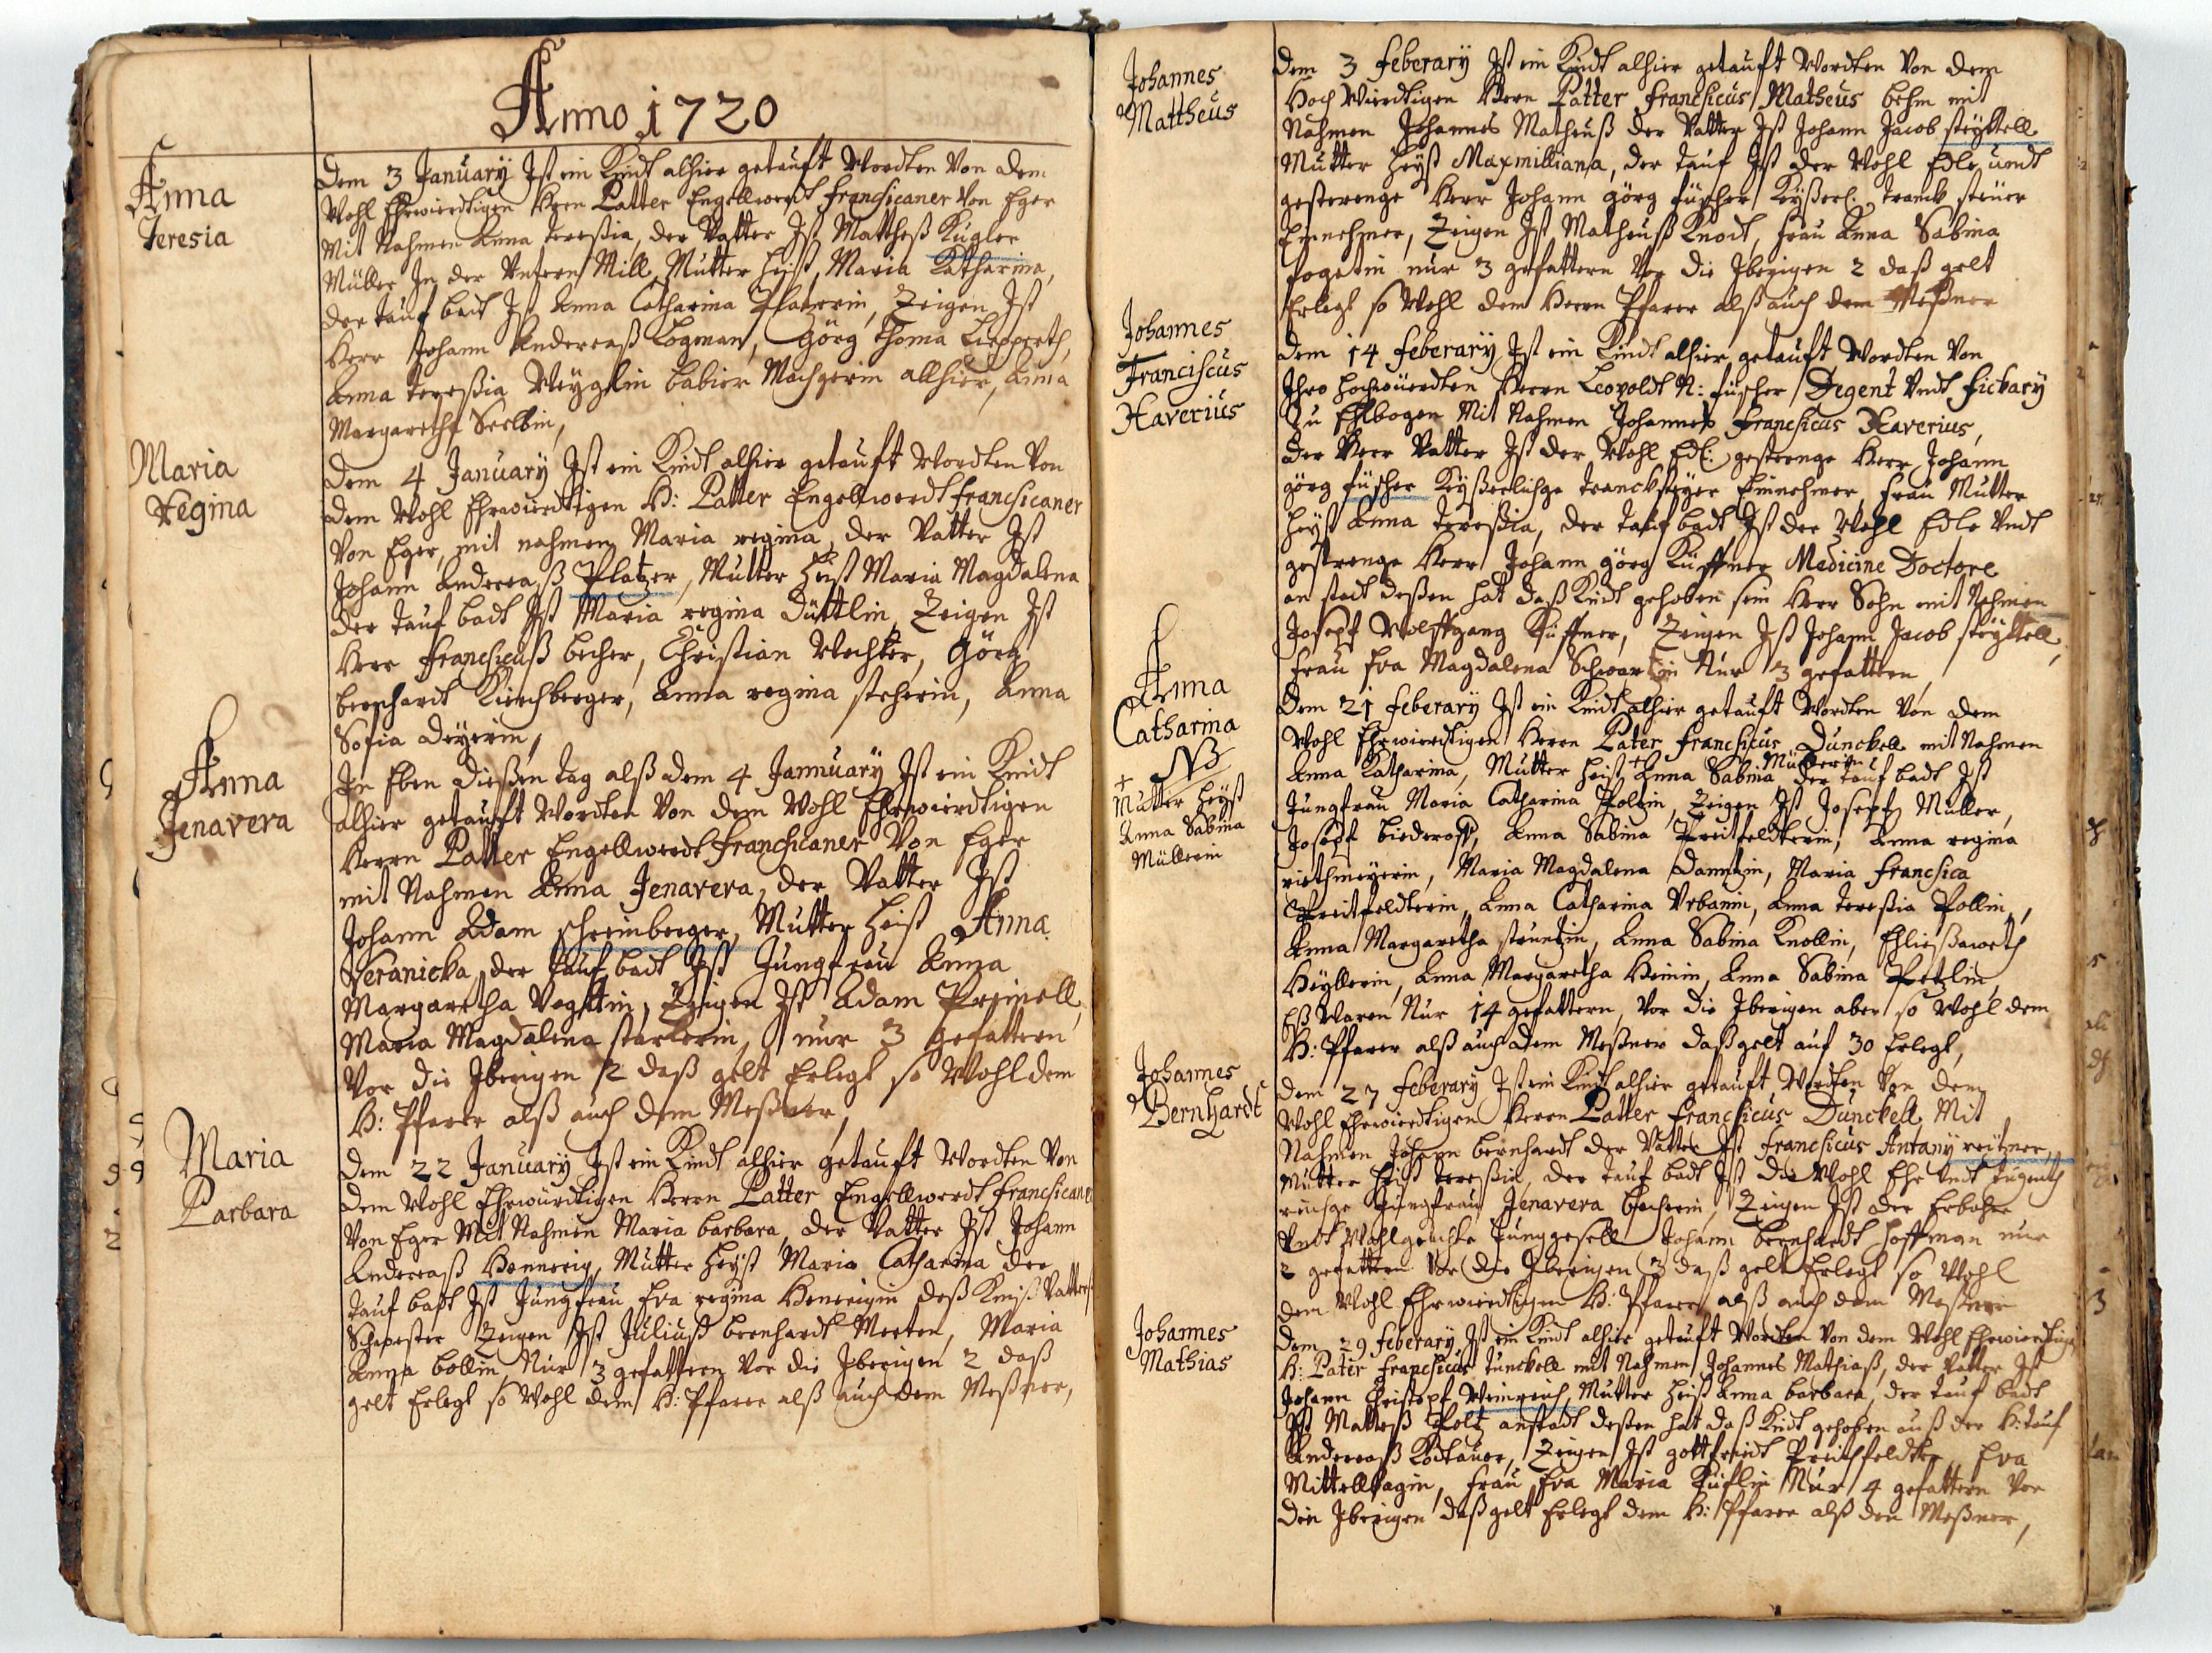 Anno 1720
Anna
Teresia
Dem 3 January Ist ein Kindt alhier getauft Wordten Von dem
Wohl Ehrwierdtigen Hern Patter Engellwerdt francsicaner Von Eger
Mit Nahmen Anna teresßia, der Vatter Ist Mattheß Kugler
Müller In der Untern Mill, Mutter heist, Maria Katharina,
der tauf badt Ist Anna Catharina Platzerin, Zeigen Ist
Herr Johann Andereaß Logman, Görg thoma Lieperth,
Anna teresßia Weyglin babier Machgerin allhier, Anna
Margaretha Seelbin,
Maria
Regina
Dem 4 January Ist ein Kindt alhier getauft Wordten Von
dem Wohl Ehrwierdtigen H: Patter Engellwerdt francsicaner
Von Eger, mit nahmen Maria regina, der Vatter Ist
Johann Andereaß Platzer, Mutter heist Maria Magdalena
der tauf badt Ist Maria regina Düttlin, Zeigen Ist
Herr francsicuß becher, Christian Wechter, Görg
bernhardt Kirchberger, Anna regina steherin, Anna
Sofia Deyerin,
Anna
Jenavera
In Eben dießen tag alß dem 4 Jannuary Ist ein Kindt
alhier getauft Wordten Von dem Wohl Ehrwierdtigen
Herrn Patter Engellwerdt francsicaner Von Eger
mit Nahmen Anna Jenavera, der Vatter Ist
Johann Adam schreinberger, Mutter heist Anna
Veranicka, der tauf badt Ist Jungfrau Anna
Margaretha Vogttin, Zeigen Ist Adam Preinell,
Maria Magdalena starkerin, nur 3 gefattern
Vor die Iberigen 2 daß gelt Erlegt so Wohl dem
H: Pfarer alß auch dem Meßner,
Maria
Barbara
Dem 22 January Ist ein Kindt alhier getauft Wordten Von
dem Wohl Ehrwürdtigen Herrn Patter Engellwerdt francsicaner
Von Eger Mit Nahmen Maria barbara, der Vatter Ist Johann
Andereaß Hennerig, Mutter heyst Maria Catharina der
tauf badt Ist Jungfrau Eva regina Hennrigin deß Vatters
Schwester Zeigen Ist Juliuß bernhardt Merten, Maria
Anna bollin Nur 3 gefattern Vor die Iberigen 2 daß
gelt Erlegt so Wohl dem H: Pfarer alß auch dem Meßner,
Johannes
Mattheus
Dem 3 feberary Ist ein Kindt alhier getauft Wordten Von dem
Hoch Wierdtigen Hern Patter francsicus Matheus behm mit
Nahmen Johannes Matheuß der Vatter Ist Johann Jacob steyttell
Mutter heyst Maxmilliana, der tauf Ist der Wohl Edle undt
gesterenge Herr Johann görg füscher Keyßerl: tranck steuer
Einnehmer, Zeigen Ist Matheuß Knodt, frau Anna Sabina
fogetin nur 3 gefattern Vor die Iberigen 2 daß gelt
Erlegt so Wohl dem Herrn Pfarer alß auch dem Meßner
Johannes
Franciscus
Xaverius
Dem 14 feberary Ist ein Kindt alhier getauft Wordten Von
Ihro hochwürdten Herrn Leopoldt N: füscher Degent Undt fickary
Zu Ehlbogen Mit Nahmen Johannes francsicus Xaverius,
der Herr Vatter Ist der Wohl Edl: gesterenge Herr Johann
görg füscher Keyßerlichge tranckstyer Einnehmer, frau Mutter
heyst Anna teresßia, der tauf badt Ist der Wohl Edle Undt
gestrenge Herr Johann görg Küffner Medicine Doctore
an stadt deßen hat daß Kindt gehoben sein Herr Sohn mit Nahmen
Josepf Wolffgang Küffner, Zeigen Ist Johann Jacob steyttell,
frau Eva Magdalena Schwartzin Nur 3 gefattern
Anna
Catharina
NB
+
Mutter heyst
Anna Sabina
Müllerin
Dem 21 feberary Ist ein Kindt alhier getauft Wordten Von dem
Wohl Ehrwierdtigen Herrn Pater francsicus Dunckell mit Nahmen
Anna Katharina, Mutter heist + Anna Sabina Müllerin der tauf badt Ist
Jungfrau Maria Catharina Poltzin, Zeigen Ist Josepf Müller,
Josepf biedeross, Anna Sabina Preitfeldterin, Anna regina
riethmeyerin, Maria Magdalena Danntin, Maria francsica
Preitfeldterin, Anna Catharina Urbanin, Anna teresßia Pollin,
Anna Margaretha stuntzin, Anna Sabina Knollin, Ehließaweth
Heyllerin, Anna Margaretha Heinin, Anna Sabina Petzlin,
Eß Waren Nur 14 gefattern, Vor die Iberigen aber so Wohl dem
H: Pfarer alß auch dem Meßner daß gelt auf 30 Erlegt,
Johannes
Bernhardt
Dem 27 feberary Ist ein Kindt alhier getauft Wordten Von dem
Wohl Ehrwierdtigen Herrn Patter francsicus Dunckell Mit
Nahmen Johann bernhardt der Vatter Ist francsicus Antany reitzner,
Mutter heist teresßia, der tauf badt Ist die Wohl Ehr Undt tugenth
reichge Jungfrau Jenavera becherin, Zeigen Ist der Erbahre
Undt Wohlgeachte Junggesell Johann bernhardt Hoffman nur
2 gefattern Vor die Iberigen 3 daß gelt Erlegt so Wohl
dem Wohl Ehrwierdtigen H: Pfarer alß auch dem Meßner
Johannes
Mathias
Dem 29 feberary Ist ein Kindt alhier getauft Wordten Von dem Wohl Ehrwierdtigen
H: Pater francsicus tunckell mit Nahmen Johannes Mathiaß, der Vatter Ist
Johann Christopf Weinreich, Mutter heist Anna barbara, der tauf badt
Ist Matteß Poltz anstadt deßen hat daß Kindt gehoben auß der H: tauf
Andereaß Kodtauer, Zeigen Ist gottfriedt Preithfeldter, Eva
Mittelbagin, frau Eva Maria Küflin Nur 4 gefattern Vor
die Iberigen daß gelt Erlegt dem H: Pfarer alß den Meßner,